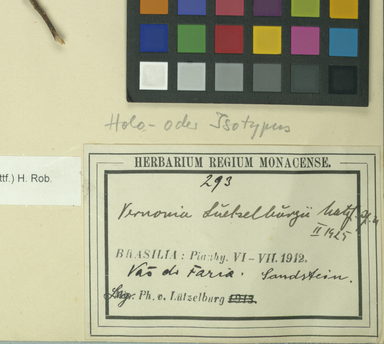 Holo- oder Isotypus
HERBARIUM REGIUM MONACENSE.
293
ttf.) H. Rob.
Vernonia Luetzelburgii Mattf.
II 1925
BRASILIA: Piauhy. VI-VII. 1912.
Vão de Faria. Sandstein.
Leg. Ph. v. Lützelburg 1913.